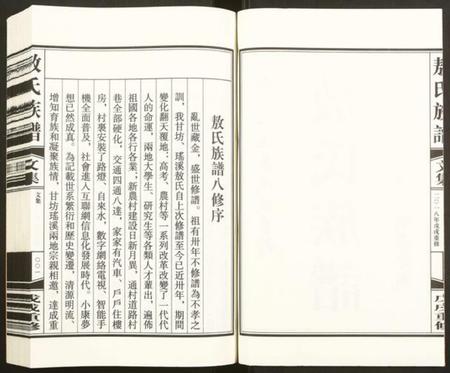 敖氏族譜八修序
亂世藏金，盛世修譜。祖有卅年不修譜為不孝之
訓，我甘坊、瑤溪敖氏自上次修譜至今已近卅年，期間
變化翻天覆地、高考、農村等一系列改革改變了一代代
人的命運，兩地大學生、研究生等各類人才輩出，遍佈
祖國各地各行各業；新農村建設日新月異，通村道路村
巷全部硬化，交通四通八達，家家有汽車、戶戶住樓
房，村裏安裝了路燈、自來水，數字網絡電視、智能手
機全面普及，社會進入互聯網信息化發展時代。小康夢
想已然成真。為記載世系繁衍和歷史變遷，清源明流、
增知育族和凝聚族情，甘坊瑤溪兩地宗親相邀，達成重
敖氏族譜
文集
文集
〇〇一
戊戌重修
敖氏族譜
文集
二〇一八年戊戌重修
戊戌重修